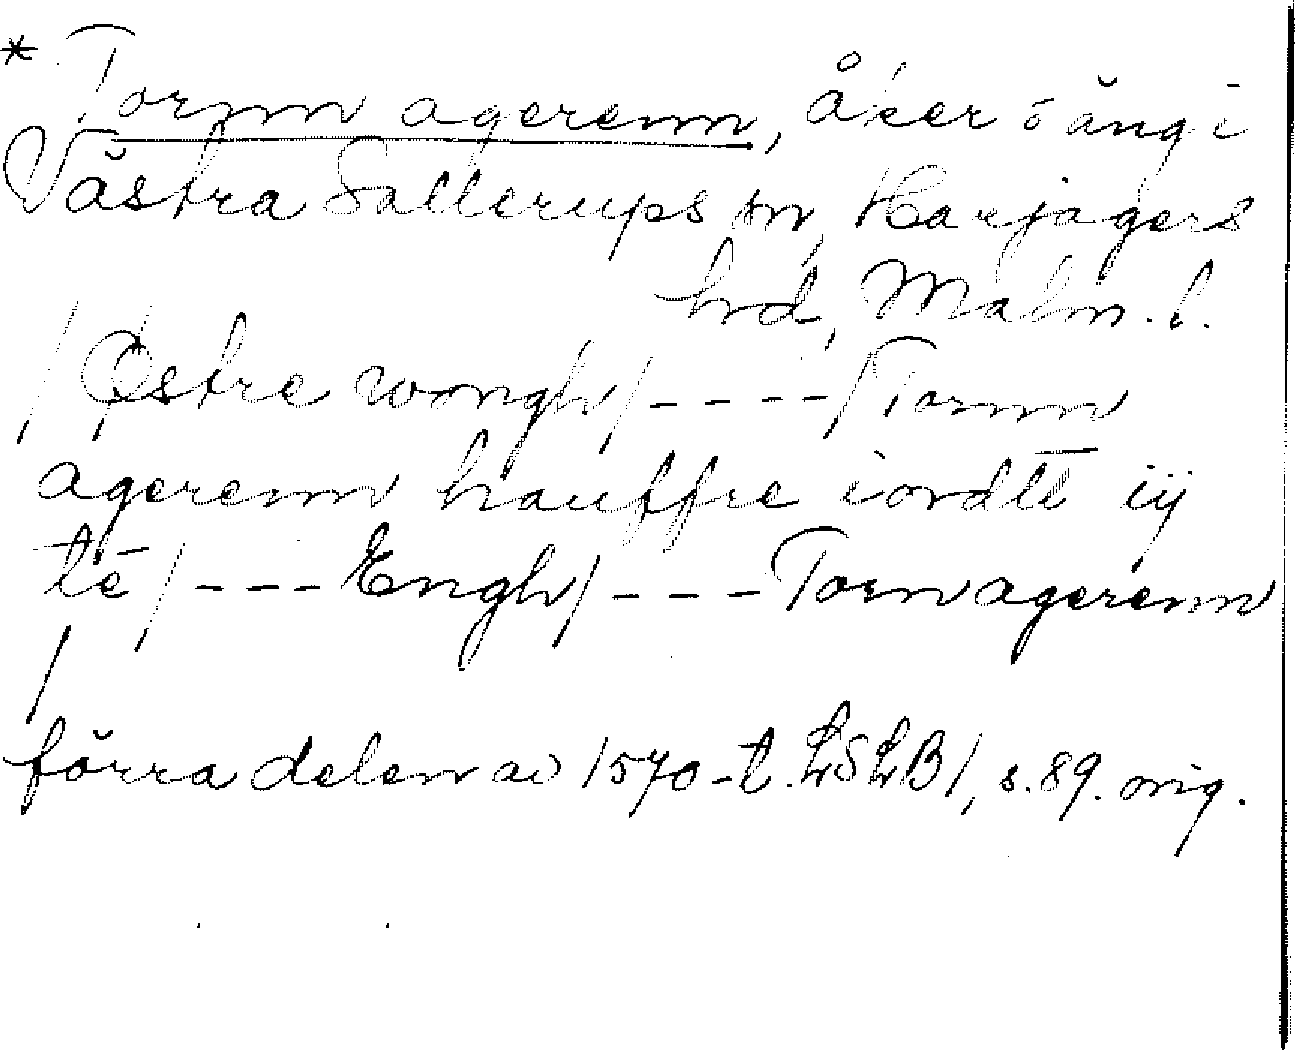 * Tornn agerenn, åker o äng i
Västra Sallerups sn, Harjagers
hd, Malm. l.
/Østre wongh/----/Tornn
agerenn hauffre iordtt iij
te/---Engh/---Tornagerenn
/
förra delen av 1570-t. LSLB1, s. 89. orig.